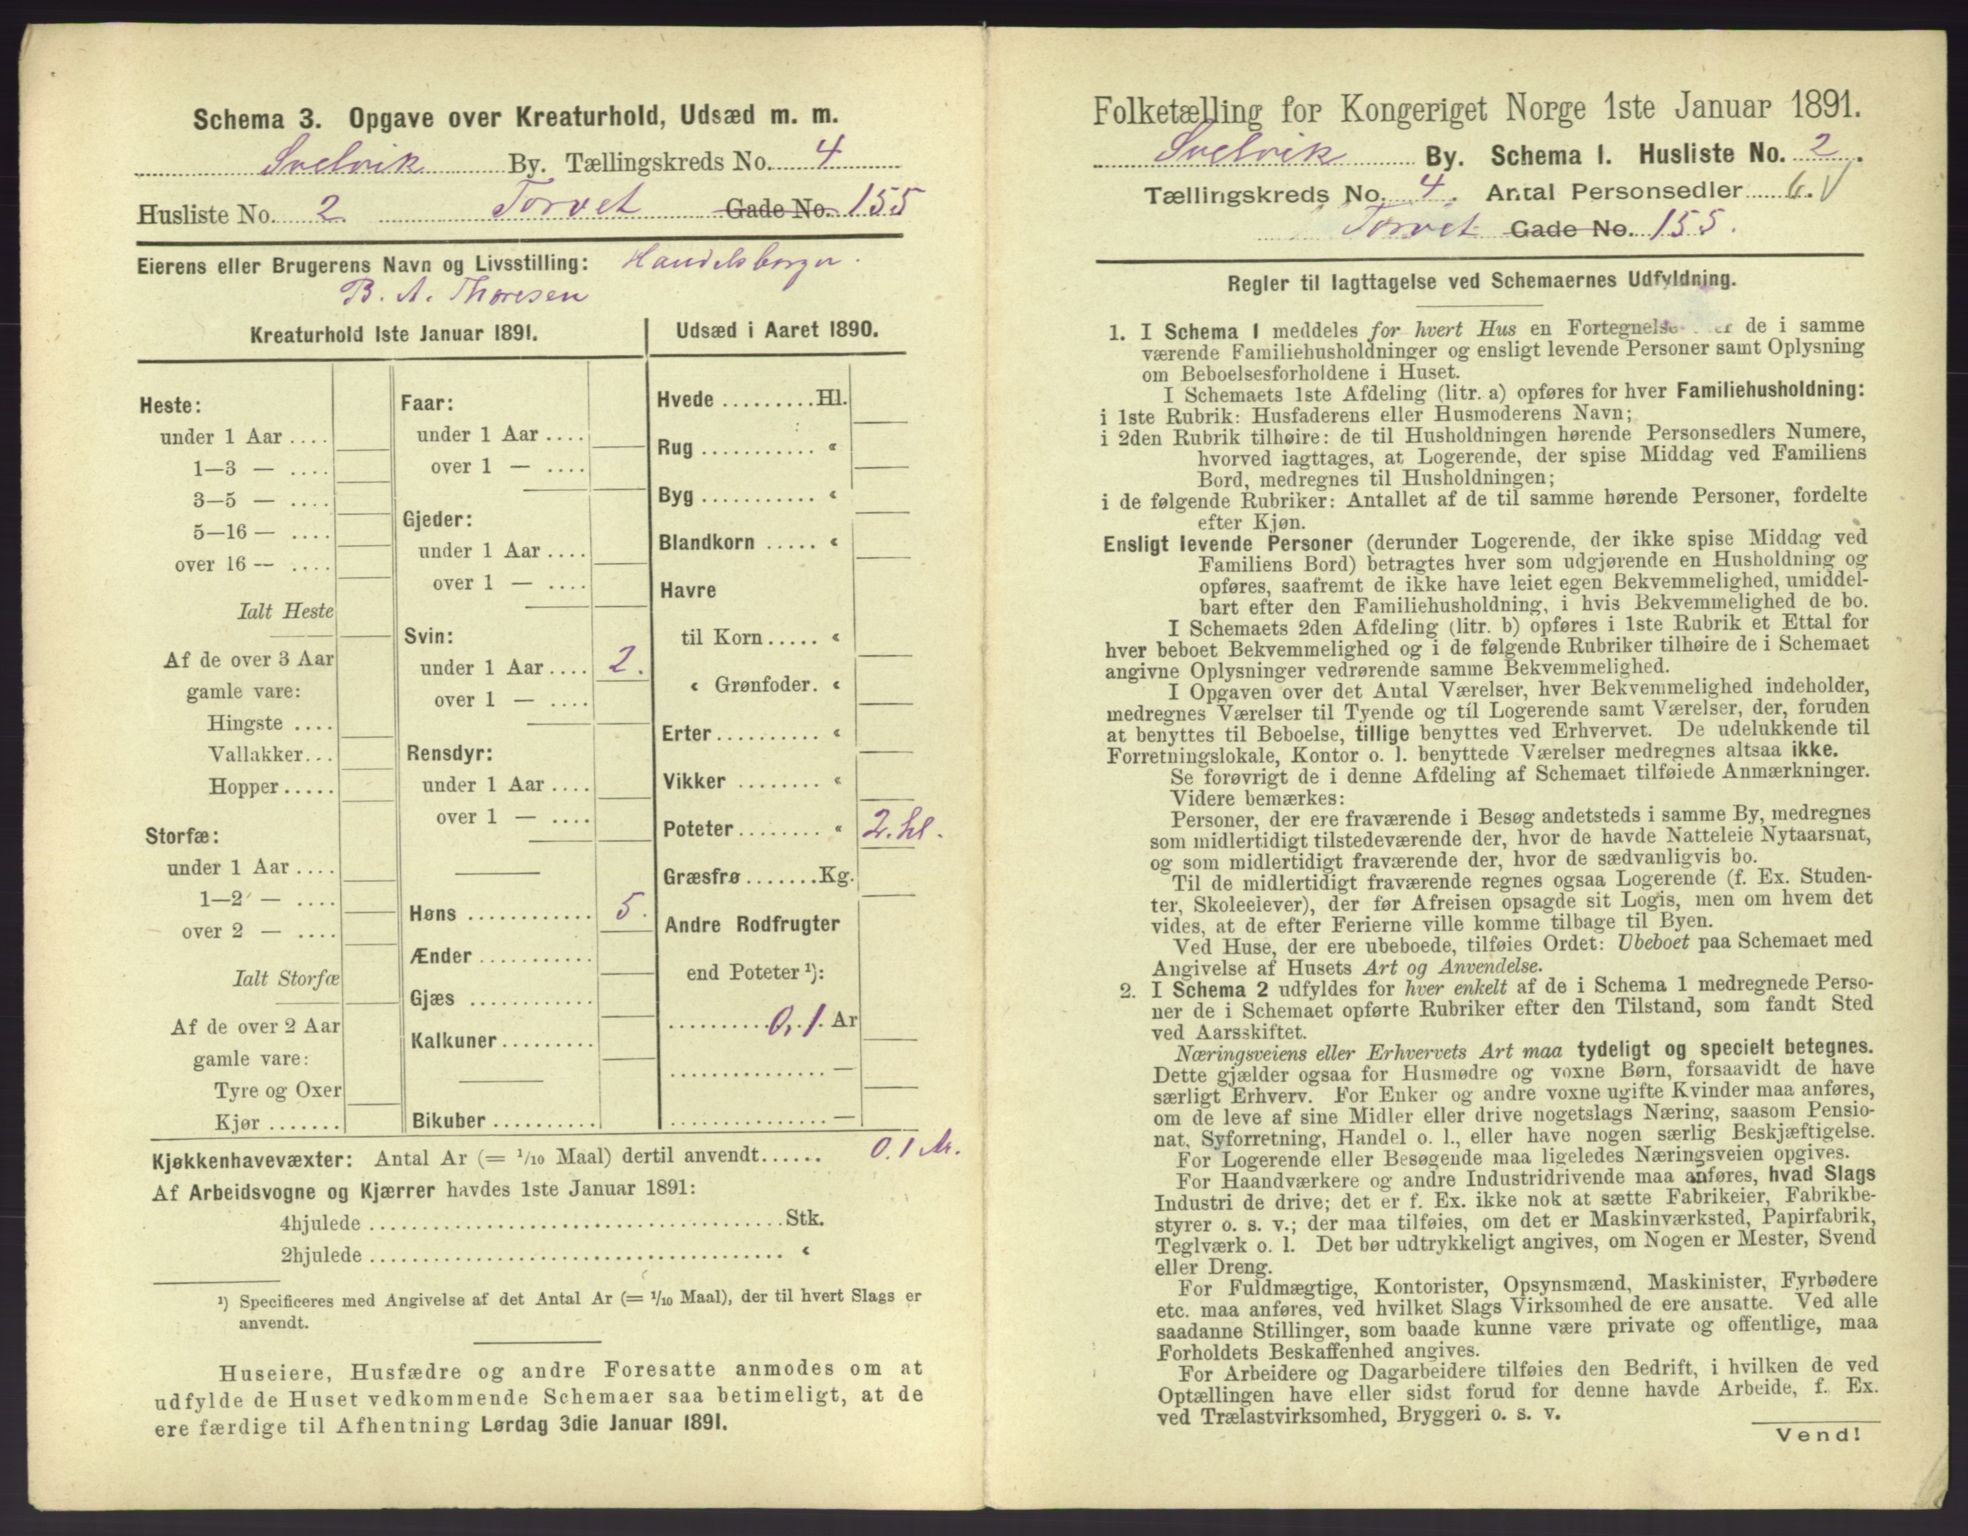 Schema 3. Opgave over Kreaturhold, Udsæd m. m.
Svelvik By. Tællingskreds No. 4
Husliste No. 2 Torvet Gade No. 155
Eierens eller Brugerens Navn og Livsstilling: Handelsborger.
B. A. Thoresen
Kreaturhold 1ste Januar 1891.
Heste:
under 1 Aar ....
1—3 — ....
3—5 — ....
5-16 — ....
over 16 — ....
Ialt Heste
Af de over 3 Aar
gamle vare:
Hingste ....
Vallakker...
Hopper.....
Storfæ:
under 1 Aar ....
1—2 — ....
over 2 — ....
Ialt Storfæ
Af de over 2 Aar
gamle vare:
Tyre og Oxer
Kjør .......
Faar:
under 1 Aar ....
over 1 — ....
Gjeder:
under 1 Aar ....
over 1 — ....
Svin:
under 1 Aar .... 2.
over 1 — ....
Rensdyr:
under 1 Aar ....
over 1 — ....
Høns ............ 5.
Ænder ...........
Gjæs ............
Kalkuner.........
Bikuber ..........
Udsæd i Aaret 1890.
Hvede .........Hl.
Rug ........... «
Byg ........... «
Blandkorn ..... «
Havre
til Korn ..... «
« Grønfoder. «
Erter.......... «
Vikker ........ «
Poteter........ « 2. hl.
Græsfrø .......Kg.
Andre Rodfrugter
end Poteter ¹):
..........0,1 Ar
............... —
............... —
Kjøkkenhavevæxter: Antal Ar (= 1/10 Maal) dertil anvendt...... 0.1 Ar.
Af Arbeidsvogne og Kjærrer havdes 1ste Januar 1891:
4hjulede ........................................Stk.
2hjulede ........................................ «
¹) Specificeres med Angivelse af det Antal Ar (= 1/10 Maal), der til hvert Slags er
anvendt.
Huseiere, Husfædre og andre Foresatte anmodes om at
udfylde de Huset vedkommende Schemaer saa betimeligt, at de
ere færdige til Afhentning Lørdag 3die Januar 1891.
Folketælling for Kongeriget Norge 1ste Januar 1891.
Svelvik By. Schema 1. Husliste No. 2.
Tællingskreds No. 4. Antal Personsedler 6. V
Torvet Gade No. 155.
Regler til Iagttagelse ved Schemaernes Udfyldning.
1. I Schema 1 meddeles for hvert Hus en Fortegnelse de i samme
værende Familiehusholdninger og ensligt levende Personer samt Oplysning
om Beboelsesforholdene i Huset.
I Schemaets 1ste Afdeling (litr. a) opføres for hver Familiehusholdning:
i 1ste Rubrik: Husfaderens eller Husmoderens Navn;
i 2den Rubrik tilhøire: de til Husholdningen hørende Personsedlers Numere,
hvorved iagttages, at Logerende, der spise Middag ved Familiens
Bord, medregnes til Husholdningen;
i de følgende Rubriker: Antallet af de til samme hørende Personer, fordelte
efter Kjøn.
Ensligt levende Personer (derunder Logerende, der ikke spise Middag ved
Familiens Bord) betragtes hver som udgjørende en Husholdning og
opføres, saafremt de ikke have leiet egen Bekvemmelighed, umiddel-
bart efter den Familiehusholdning, i hvis Bekvemmelighed de bo.
I Schemaets 2den Afdeling (litr. b) opføres i 1ste Rubrik et Ettal for
hver beboet Bekvemmelighed og i de følgende Rubriker tilhøire de i Schemaet
angivne Oplysninger vedrørende samme Bekvemmelighed.
I Opgaven over det Antal Værelser, hver Bekvemmelighed indeholder,
medregnes Værelser til Tyende og til Logerende samt Værelser, der, foruden
at benyttes til Beboelse, tillige benyttes ved Erhvervet. De udelukkende til
Forretningslokale, Kontor o. l. benyttede Værelser medregnes altsaa ikke.
Se forøvrigt de i denne Afdeling af Schemaet tilføiede Anmærkninger.
Videre bemærkes:
Personer, der ere fraværende i Besøg andetsteds i samme By, medregnes
som midlertidigt tilstedeværende der, hvor de havde Natteleie Nytaarsnat,
og som midlertidigt fraværende der, hvor de sædvanligvis bo.
Til de midlertidigt fraværende regnes ogsaa Logerende (f. Ex. Studen-
ter, Skoleelever), der før Afreisen opsagde sit Logis, men om hvem det
vides, at de efter Ferierne ville komme tilbage til Byen.
Ved Huse, der ere ubeboede, tilføies Ordet: Ubeboet paa Schemaet med
Angivelse af Husets Art og Anvendelse.
2. I Schema 2 udfyldes for hver enkelt af de i Schema 1 medregnede Perso-
ner de i Schemaet opførte Rubriker efter den Tilstand, som fandt Sted
ved Aarsskiftet.
Næringsveiens eller Erhvervets Art maa tydeligt og specielt betegnes.
Dette gjælder ogsaa for Husmødre og voxne Børn, forsaavidt de have
særligt Erhverv. For Enker og andre voxne ugifte Kvinder maa anføres,
om de leve af sine Midler eller drive nogetslags Næring, saasom Pensio-
nat, Syforretning, Handel o. l., eller have nogen særlig Beskjæftigelse.
For Logerende eller Besøgende maa ligeledes Næringsveien opgives.
For Haandværkere og andre Industridrivende maa anføres, hvad Slags
Industri de drive; det er f. Ex. ikke nok at sætte Fabrikeier, Fabrikbe-
styrer o. s. v.; der maa tilføies, om det er Maskinværksted, Papirfabrik,
Teglværk o. l. Det bør udtrykkeligt angives, om Nogen er Mester, Svend
eller Dreng.
For Fuldmægtige, Kontorister, Opsynsmænd, Maskinister, Fyrbødere
etc. maa anføres, ved hvilket Slags Virksomhed de ere ansatte. Ved alle
saadanne Stillinger, som baade kunne være private og offentlige, maa
Forholdets Beskaffenhed angives.
For Arbeidere og Dagarbeidere tilføies den Bedrift, i hvilken de ved
Optællingen have eller sidst forud for denne havde Arbeide, f. Ex.
ved Trælastvirksomhed, Bryggeri o. s. v.
Vend!